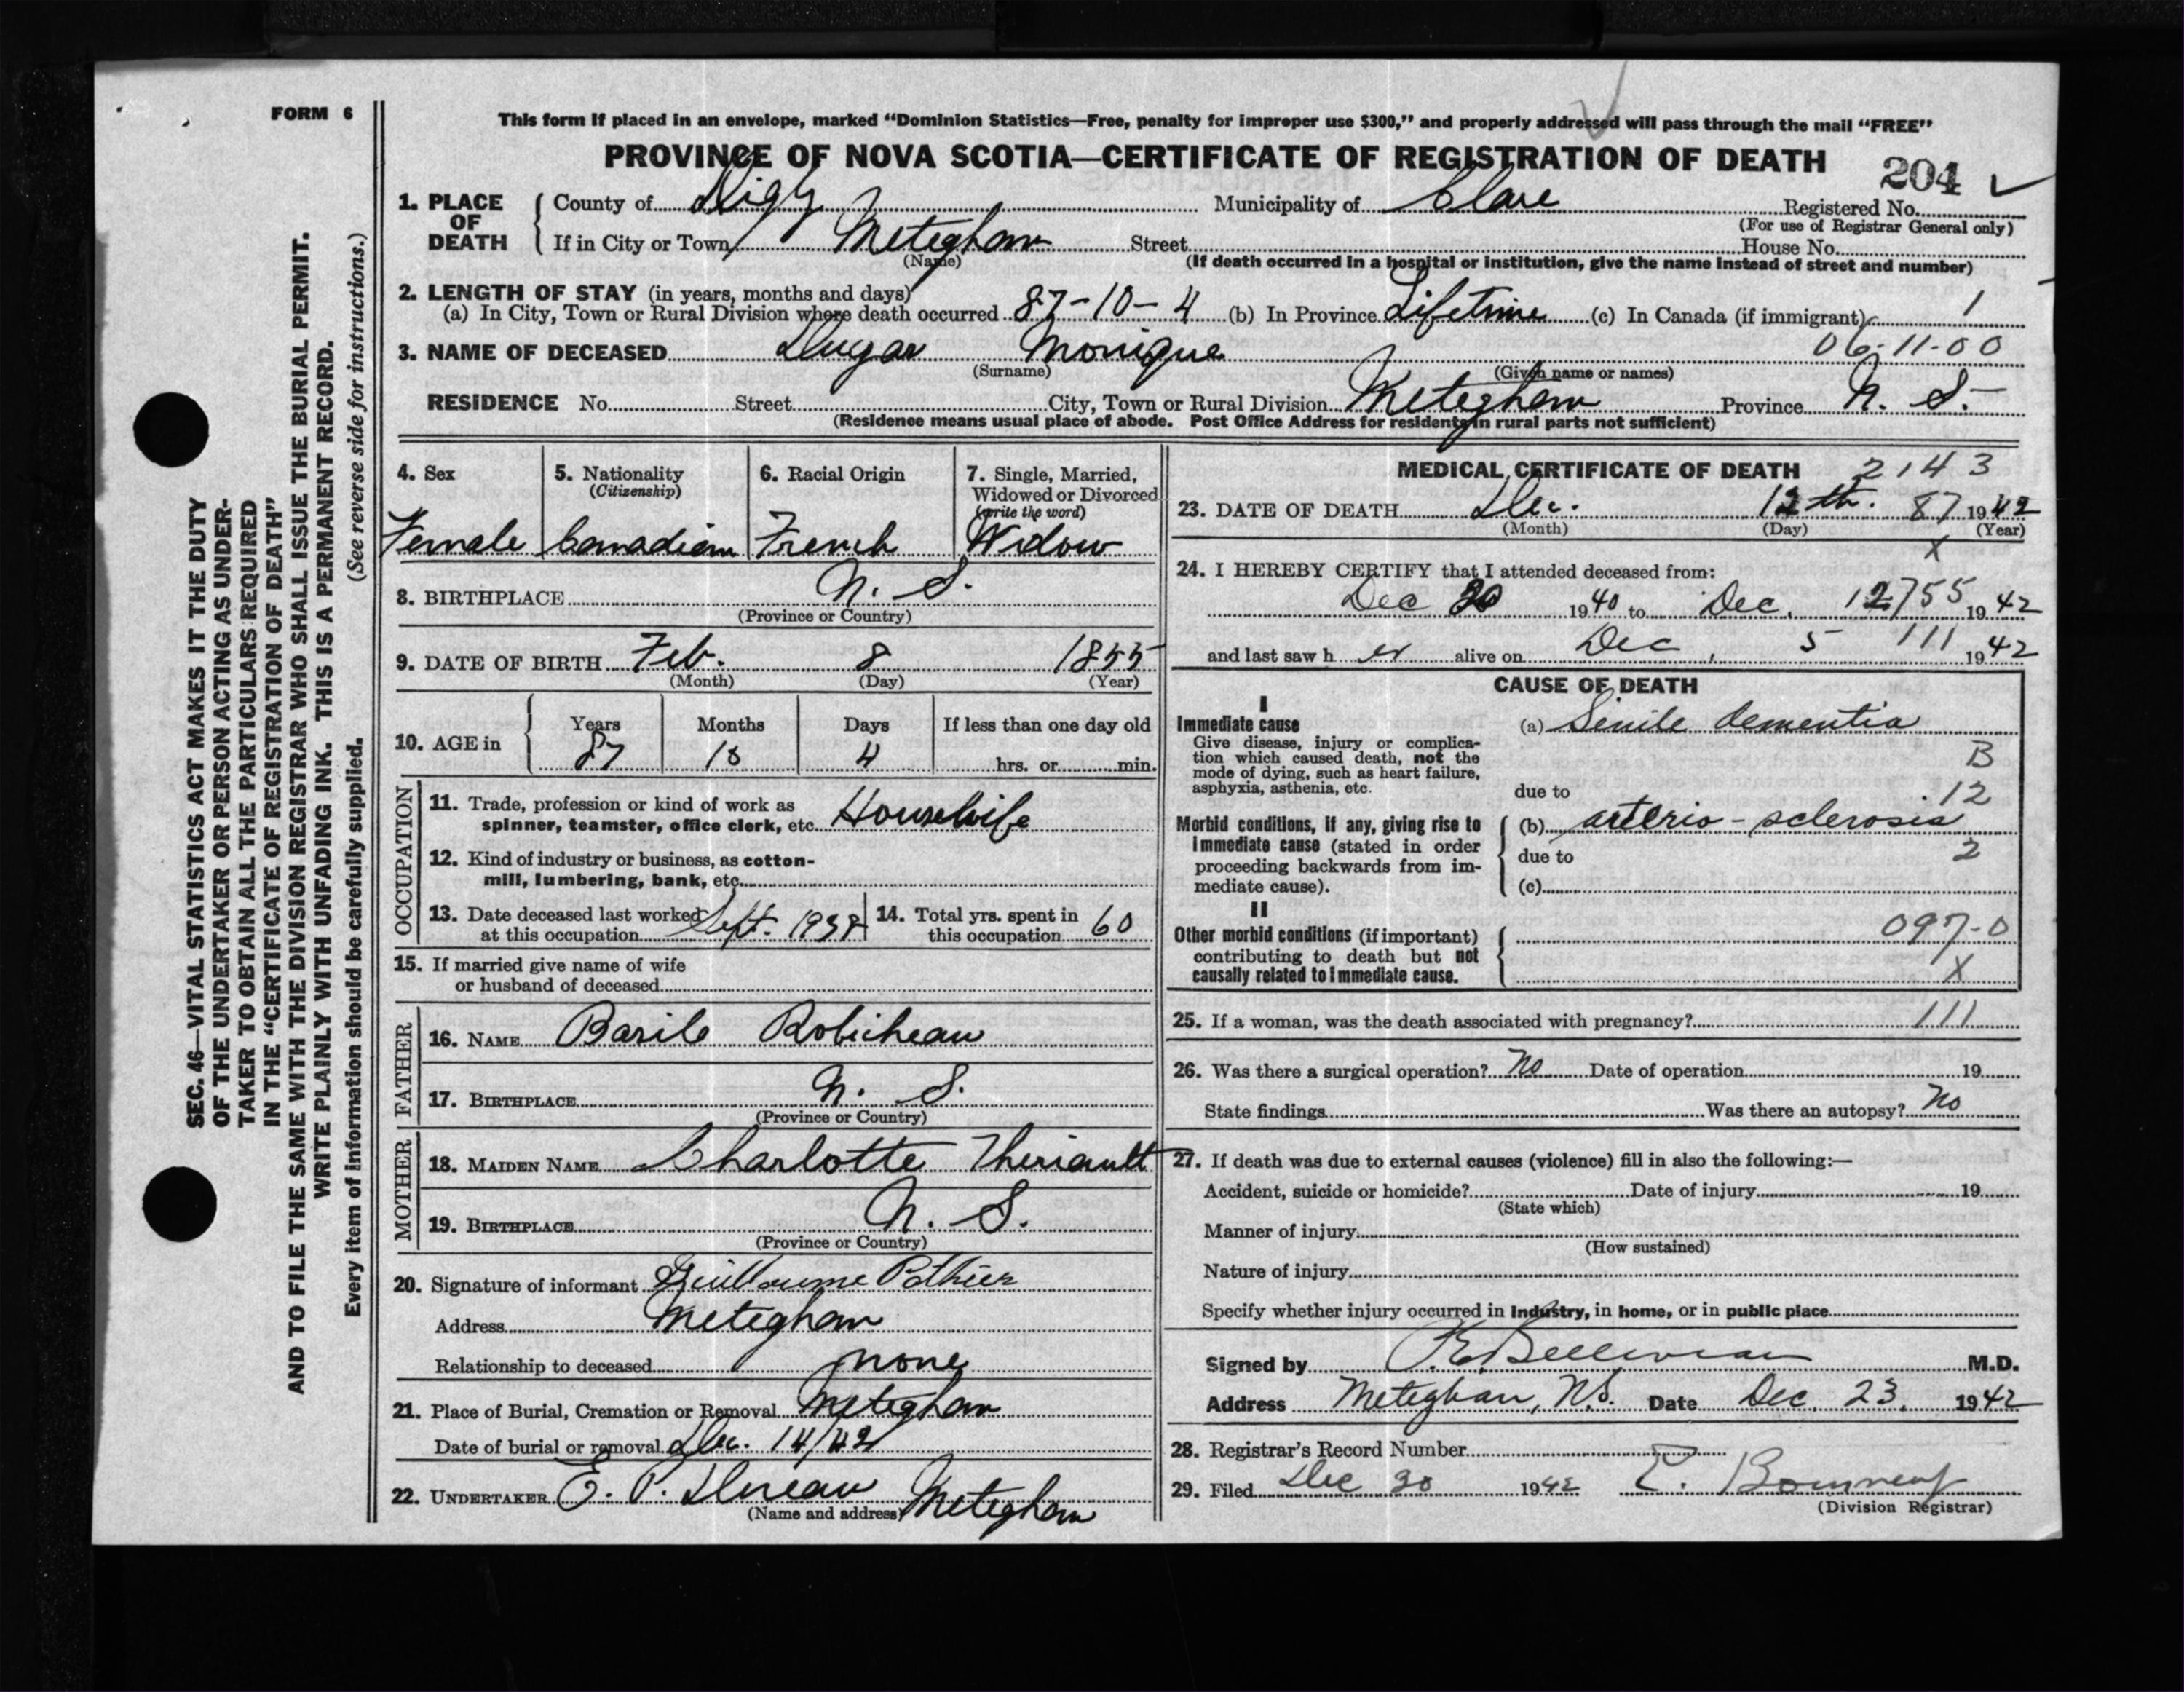 FORM 6
This form if placed in an envelope, marked “Dominion Statistics—Free, penalty for improper use $300,” and properly addressed will pass through the mail “FREE”
PROVINCE OF NOVA SCOTIA—CERTIFICATE OF REGISTRATION OF DEATH
204
1. PLACE OF DEATH
County of Digby Municipality of Clare Registered No.
(For use of Registrar General only)
If in City or Town Meteghan Street House No.
(Name)
(If death occurred in a hospital or institution, give the name instead of street and number)
2. LENGTH OF STAY (in years, months and days)
(a) In City, Town or Rural Division where death occurred 87-10-4 (b) In Province Lifetime (c) In Canada (if immigrant) 1
3. NAME OF DECEASED Dugas Monique 06-11-00
(Surname) (Given name or names)
RESIDENCE No. Street City, Town or Rural Division Meteghan Province N. S.
(Residence means usual place of abode. Post Office Address for residents in rural parts not sufficient)
4. Sex
Female
5. Nationality
(Citizenship)
Canadian
6. Racial Origin
French
7. Single, Married,
Widowed or Divorced
(write the word)
Widow
8. BIRTHPLACE N. S.
(Province or Country)
9. DATE OF BIRTH Feb. 8 1855
(Month) (Day) (Year)
10. AGE in
Years Months Days If less than one day old
87 10 4 hrs. or min.
OCCUPATION
11. Trade, profession or kind of work as
spinner, teamster, office clerk, etc. Housewife
12. Kind of industry or business, as cotton-
mill, lumbering, bank, etc.
13. Date deceased last worked
at this occupation Sept. 1938
14. Total yrs. spent in
this occupation 60
15. If married give name of wife
or husband of deceased
FATHER
16. NAME Basile Robicheau
17. BIRTHPLACE N. S.
(Province or Country)
MOTHER
18. MAIDEN NAME Charlotte Theriault
19. BIRTHPLACE N. S.
(Province or Country)
20. Signature of informant Guillaume Pothier
Address Meteghan
Relationship to deceased none
21. Place of Burial, Cremation or Removal Meteghan
Date of burial or removal Dec. 14/42
22. UNDERTAKER E. P. Meteghan
(Name and address)
MEDICAL CERTIFICATE OF DEATH 2143
23. DATE OF DEATH Dec. 12th. 87 1942
(Month) (Day) (Year)
X
24. I HEREBY CERTIFY that I attended deceased from:
Dec 20 1940 to Dec. 12 755 1942
and last saw her alive on Dec, 5 111 1942
CAUSE OF DEATH
I
Immediate cause
Give disease, injury or complica-
tion which caused death, not the
mode of dying, such as heart failure,
asphyxia, asthenia, etc.
(a) Senile dementia
B
due to
12
Morbid conditions, if any, giving rise to
immediate cause (stated in order
proceeding backwards from im-
mediate cause).
(b) arterio-sclerosis
due to 2
(c)
II
Other morbid conditions (if important)
contributing to death but not
causally related to immediate cause.
097-0
X
25. If a woman, was the death associated with pregnancy? 111
26. Was there a surgical operation? No Date of operation 19
State findings Was there an autopsy? No
27. If death was due to external causes (violence) fill in also the following:—
Accident, suicide or homicide? Date of injury 19
(State which)
Manner of injury
(How sustained)
Nature of injury
Specify whether injury occurred in industry, in home, or in public place
Signed by M.D.
Address Meteghan, N.S. Date Dec. 23. 1942
28. Registrar's Record Number
29. Filed Dec 30 1942 E.
(Division Registrar)
SEC. 46—VITAL STATISTICS ACT MAKES IT THE DUTY
OF THE UNDERTAKER OR PERSON ACTING AS UNDER-
TAKER TO OBTAIN ALL THE PARTICULARS REQUIRED
IN THE “CERTIFICATE OF REGISTRATION OF DEATH”
AND TO FILE THE SAME WITH THE DIVISION REGISTRAR WHO SHALL ISSUE THE BURIAL PERMIT.
WRITE PLAINLY WITH UNFADING INK. THIS IS A PERMANENT RECORD.
Every item of information should be carefully supplied. (See reverse side for instructions.)